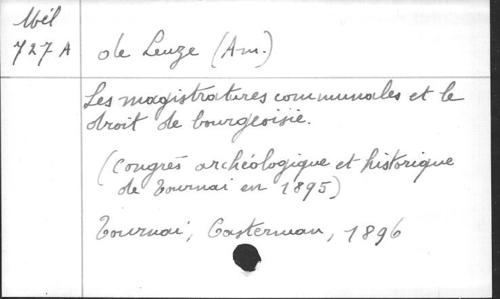 Mél
727 A
de Leuze (Am.)
Les magistratures communales et le
droit de bourgeoisie.
(Congrès archéologique et historique
de Tournai en 1895)
Tournai, Casterman, 1896